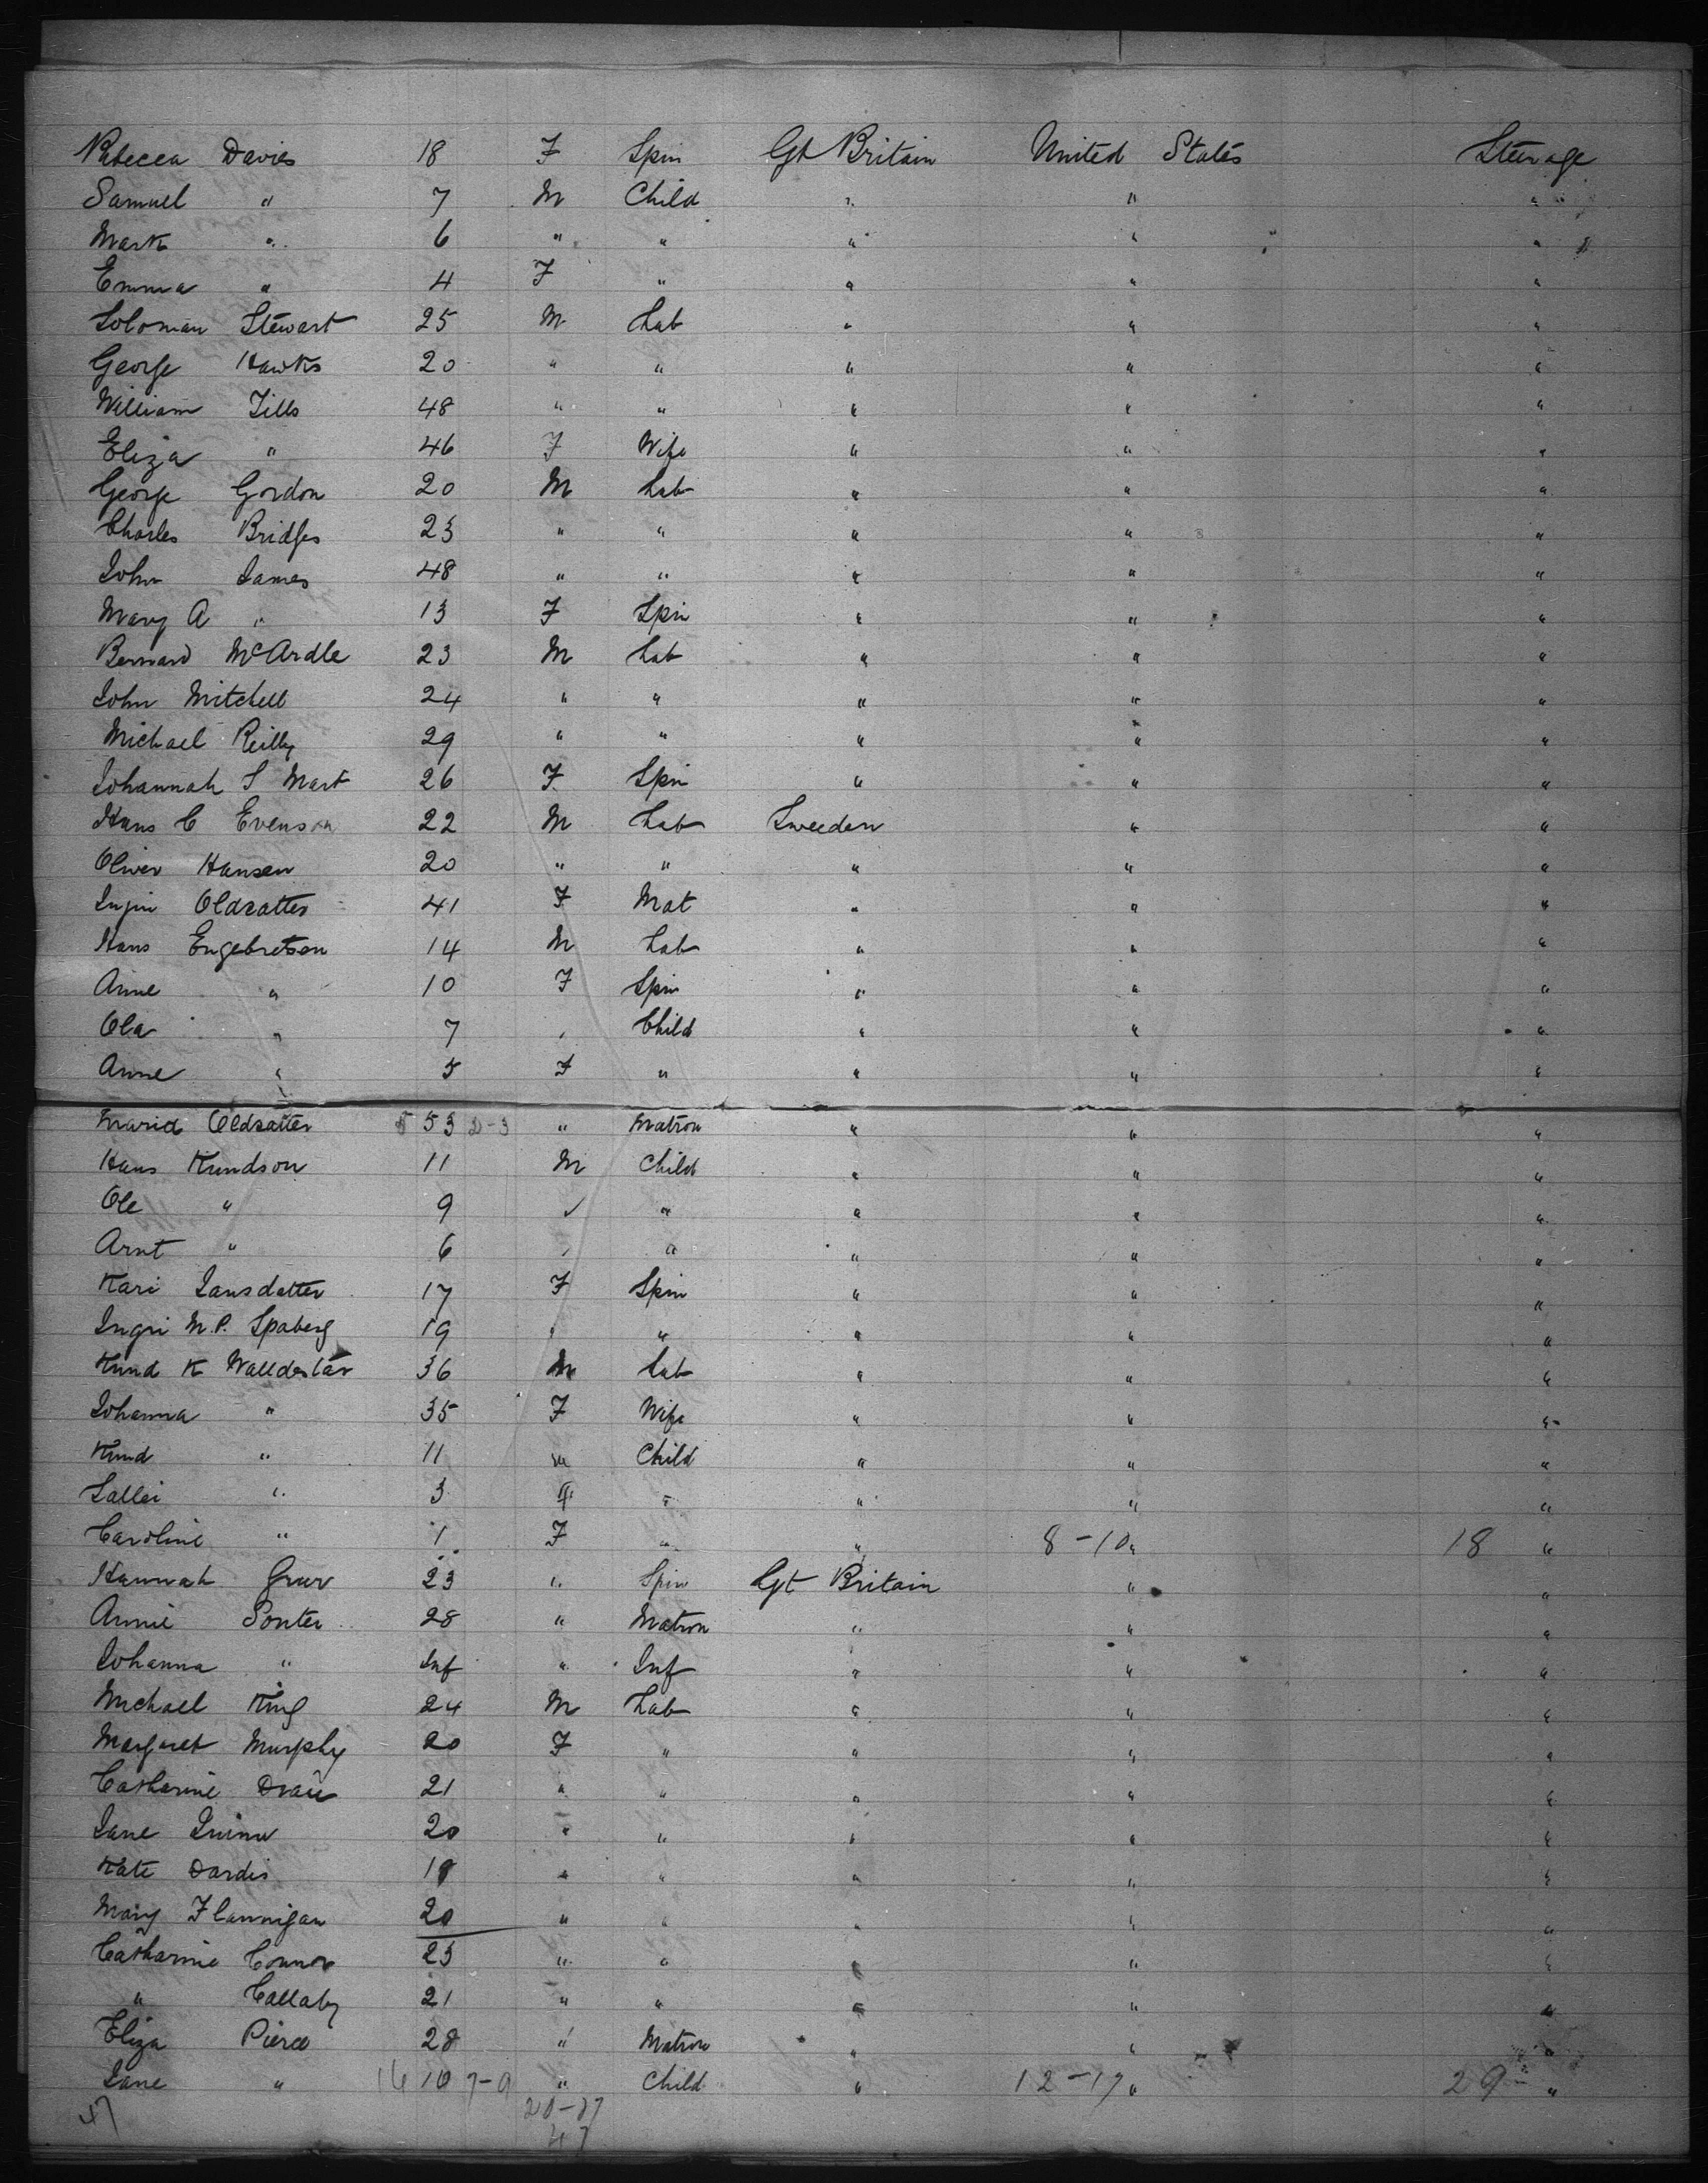 Rebecca Davies 18 F Spin Gt Britain United States Steerage
Samuel " 7 M Child " " "
Mark " 6 " " " " "
Emma " 4 F " " " "
Soloman Stewart 25 M Lab " " "
George Hawks 20 " " " " "
William Tills 48 " " " " "
Eliza " 46 F Wife " " "
George Gordon 20 M Lab " " "
Charles Bridges 23 " " " " "
John James 48 " " " " "
Mary A " 13 F Spin " " "
Bernard McArdle 23 M Lab " " "
John Mitchell 24 " " " " "
Michael Reilly 29 " " " " "
Johannah S Mart 26 F Spin " " "
Hans C Evenson 22 M Lab Sweeden " "
Oliver Hansen 20 " " " " "
Oldsatter 41 F Mat " " "
Hans Engebretsen 14 M Lab " " "
Anne " 10 F Spin " " "
Ola " 7 " Child " " "
Anne " 5 F " " " "
Marid Oldsatter 53 " Matron " " "
Hans Kundson 11 M Child " " "
Ole " 9 " " " " "
Arnt " 6 " " " " "
Kari Jansdatter 17 F Spin " " "
Ingri M.P. Spaberg 19 " " " " "
Knud K Walldestar 36 M Lab " " "
Johanna " 35 F Wife " " "
Knud " 11 M Child " " "
" 3 " " " "
Caroline " 1 F " " 8-10 " 18 "
Hannah 23 " Spin Gt Britain " "
Annie Souter 28 " Matron " " "
Johanna " Inf " Inf " " "
Michael King 24 M Lab " " "
Margaret Murphy 20 F " " " "
Catharine 21 " " " " "
Jane 20 " " " " "
Kate Dardis 18 " " " " "
Mary Flannigan 20 " " " " "
Catharine Connor 23 " " " " "
" Callaby 21 " " " " "
Eliza Pierce 28 " Matron " " "
Jane " 16 10 7-9 " Child " 12-17 " 29 "
47 20-27
47